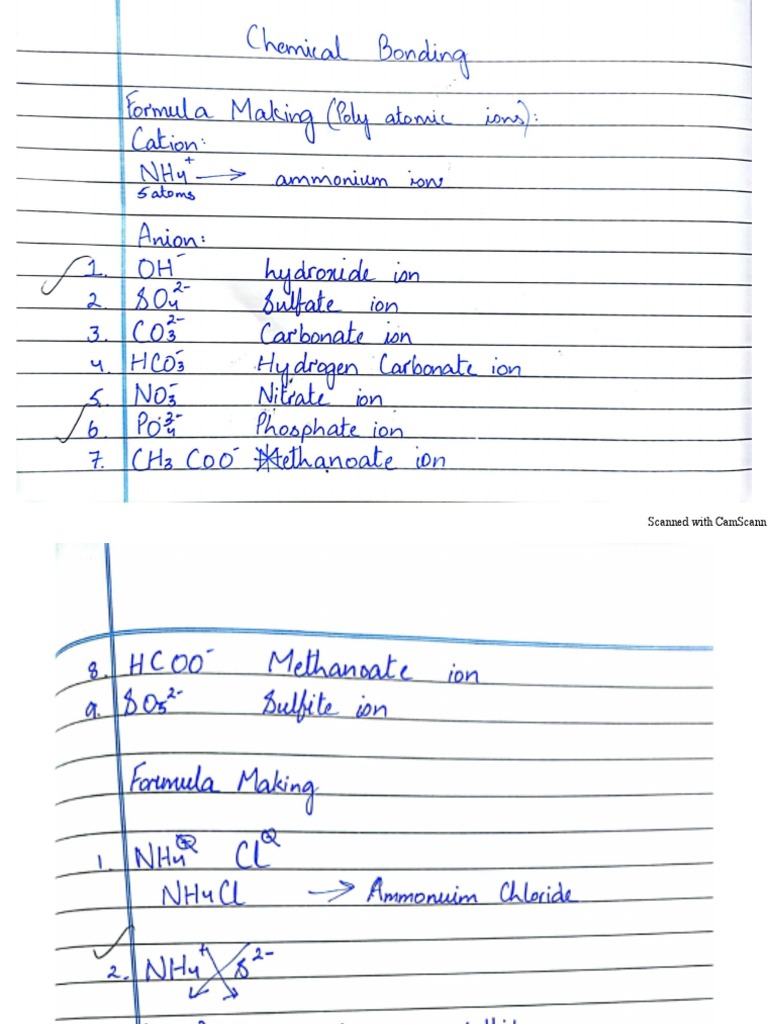 Chemical Bonding
Formula Making (Poly atomic ions):
Cation:
NH4+ → ammonium ions
5 atoms
Anion:
1. OH- hydroxide ion
2. SO4 2- Sulfate ion
3. CO3 2- Carbonate ion
4. HCO3- Hydrogen Carbonate ion
5. NO3- Nitrate ion
6. PO4 3- Phosphate ion
7. CH3 COO- Methanoate ion
Scanned with CamScann
8. HCOO- Methanoate ion
9. SO3 2- Sulfite ion
Formula Making
1. NH4+ Cl-
NH4Cl → Ammonuim Chloride
2. NH4+ S2-